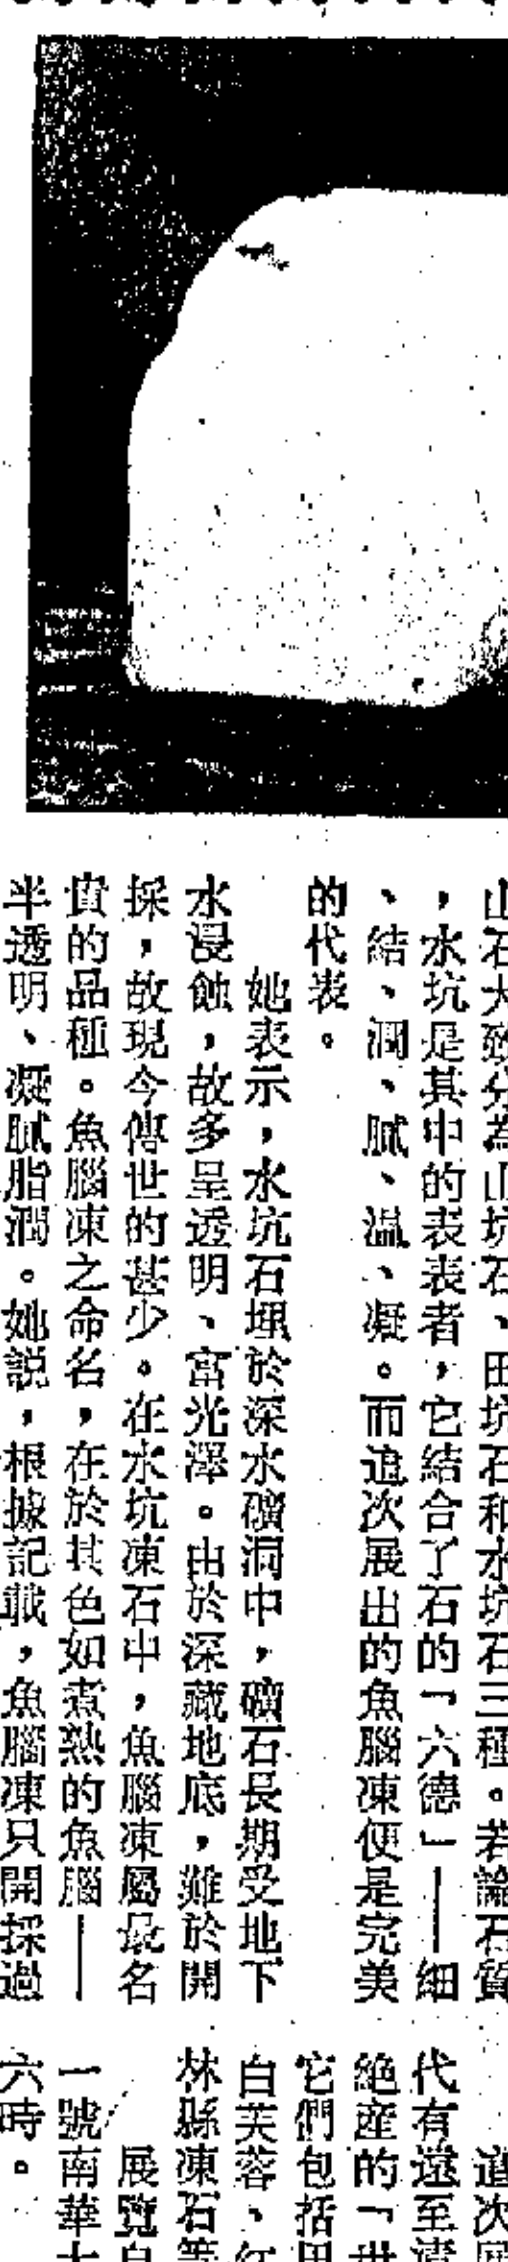 山石大致分為山坑石、田坑石和水坑石三種。若論石質
，水坑是其中的表表者，它結合了石的「六德」——細
、結、潤、膩、溫、凝。而這次展出的魚腦凍便是完美
的代表。
她表示，水坑石埋於深水礦洞中，礦石長期受地下
水浸蝕，故多呈透明、富光澤。由於深藏地底，難於開
採，故現今傳世的甚少。在水坑凍石中，魚腦凍屬最名
貴的品種。魚腦凍之命名，在於其色如煮熟的魚腦——
半透明、凝膩脂潤。她說，根據記載，魚腦凍只開採過
這次展
代有遠至清
絕産的「世
它們包括田
白芙蓉、紅
林縣凍石等
展覽自
一號南華大
六時。